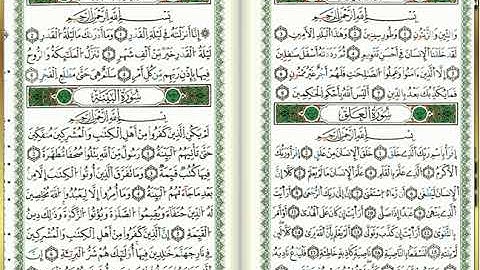 بِسْمِ اللَّهِ الرَّحْمَٰنِ الرَّحِيمِ
وَالتِّينِ وَالزَّيْتُونِ ١ وَطُورِ سِينِينَ ٢ وَهَٰذَا الْبَلَدِ الْأَمِينِ ٣
لَقَدْ خَلَقْنَا الْإِنسَانَ فِي أَحْسَنِ تَقْوِيمٍ ٤ ثُمَّ رَدَدْنَاهُ أَسْفَلَ سَافِلِينَ
٥ إِلَّا الَّذِينَ آمَنُوا وَعَمِلُوا الصَّالِحَاتِ فَلَهُمْ أَجْرٌ غَيْرُ مَمْنُونٍ ٦
فَمَا يُكَذِّبُكَ بَعْدُ بِالدِّينِ ٧ أَلَيْسَ اللَّهُ بِأَحْكَمِ الْحَاكِمِينَ ٨
سُورَةُ الْعَلَقِ
بِسْمِ اللَّهِ الرَّحْمَٰنِ الرَّحِيمِ
اقْرَأْ بِاسْمِ رَبِّكَ الَّذِي خَلَقَ ١ خَلَقَ الْإِنسَانَ مِنْ عَلَقٍ ٢ اقْرَأْ وَرَبُّكَ
الْأَكْرَمُ ٣ الَّذِي عَلَّمَ بِالْقَلَمِ ٤ عَلَّمَ الْإِنسَانَ مَا لَمْ يَعْلَمْ ٥ كَلَّا
إِنَّ الْإِنسَانَ لَيَطْغَىٰ ٦ أَن رَّآهُ اسْتَغْنَىٰ ٧ إِنَّ إِلَىٰ رَبِّكَ الرُّجْعَىٰ ٨ أَرَأَيْتَ
الَّذِي يَنْهَىٰ ٩ عَبْدًا إِذَا صَلَّىٰ ١٠ أَرَأَيْتَ إِن كَانَ عَلَى الْهُدَىٰ ١١
بِالنَّاصِيَةِ ١٥ نَاصِيَةٍ كَاذِبَةٍ خَاطِئَةٍ ١٦ فَلْيَدْعُ نَادِيَهُ
بِسْمِ اللَّهِ الرَّحْمَٰنِ الرَّحِيمِ
إِنَّا أَنزَلْنَاهُ فِي لَيْلَةِ الْقَدْرِ ١ وَمَا أَدْرَاكَ مَا لَيْلَةُ الْقَدْرِ ٢
لَيْلَةُ الْقَدْرِ خَيْرٌ مِّنْ أَلْفِ شَهْرٍ ٣ تَنَزَّلُ الْمَلَائِكَةُ وَالرُّوحُ
فِيهَا بِإِذْنِ رَبِّهِم مِّن كُلِّ أَمْرٍ ٤ سَلَامٌ هِيَ حَتَّىٰ مَطْلَعِ الْفَجْرِ ٥
سُورَةُ الْبَيِّنَةِ
بِسْمِ اللَّهِ الرَّحْمَٰنِ الرَّحِيمِ
لَمْ يَكُنِ الَّذِينَ كَفَرُوا مِنْ أَهْلِ الْكِتَابِ وَالْمُشْرِكِينَ مُنفَكِّينَ
حَتَّىٰ تَأْتِيَهُمُ الْبَيِّنَةُ ١ رَسُولٌ مِّنَ اللَّهِ يَتْلُو صُحُفًا مُّطَهَّرَةً ٢
فِيهَا كُتُبٌ قَيِّمَةٌ ٣ وَمَا تَفَرَّقَ الَّذِينَ أُوتُوا الْكِتَابَ إِلَّا مِن
بَعْدِ مَا جَاءَتْهُمُ الْبَيِّنَةُ ٤ وَمَا أُمِرُوا إِلَّا لِيَعْبُدُوا اللَّهَ مُخْلِصِينَ
لَهُ الدِّينَ حُنَفَاءَ وَيُقِيمُوا الصَّلَاةَ وَيُؤْتُوا الزَّكَاةَ وَذَٰلِكَ دِينُ
الْقَيِّمَةِ ٥ إِنَّ الَّذِينَ كَفَرُوا مِنْ أَهْلِ الْكِتَابِ وَالْمُشْرِكِينَ
فِي نَارِ جَهَنَّمَ خَالِدِينَ فِيهَا أُولَٰئِكَ هُمْ شَرُّ الْبَرِيَّةِ ٦